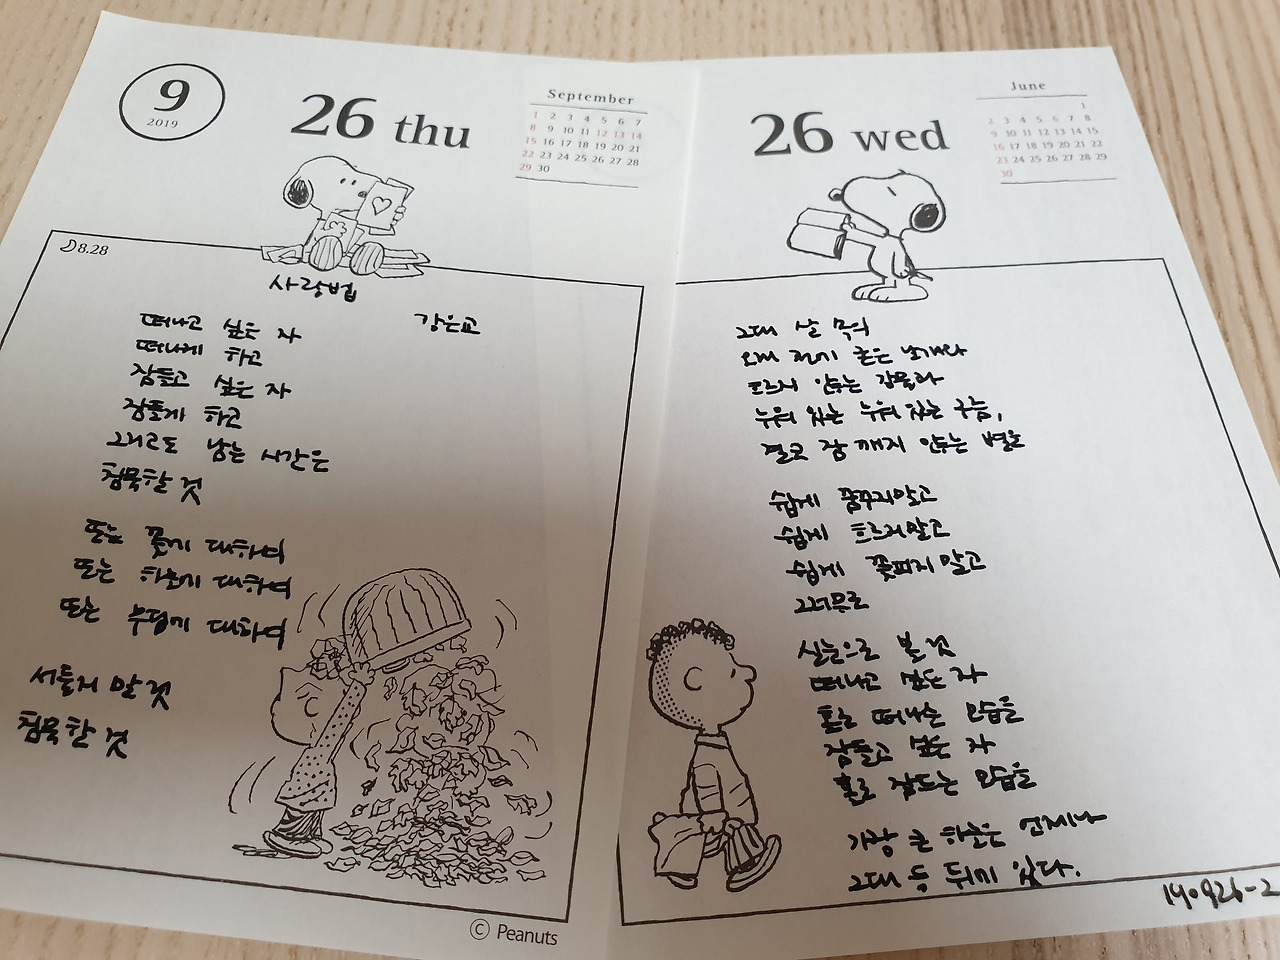 9
2019
26 thu
September
1 2 3 4 5 6 7
8 9 10 11 12 13 14
15 16 17 18 19 20 21
22 23 24 25 26 27 28
29 30
8.28
사랑법
강은교
떠나고 싶은 자
떠나게 하고
잠들고 싶은 자
잠들게 하고
그리고도 남는 시간은
침묵할 것
또는 꽃에 대하여
또는 하늘에 대하여
또는 무덤에 대하여
서둘지 말 것
침묵할 것
© Peanuts
26 wed
June
1
2 3 4 5 6 7 8
9 10 11 12 13 14 15
16 17 18 19 20 21 22
23 24 25 26 27 28 29
30
그대 살 속의
오래 전에 굳은 날개와
흐르지 않는 강물과
누워 있는 누워 있는 구름,
결코 잠 깨지 않는 별을
쉽게 꿈꾸지 말고
쉽게 흐르지 말고
쉽게 꽃피지 말고
그러므로
실눈으로 볼 것
떠나고 싶은 자
홀로 떠나는 모습을
잠들고 싶은 자
홀로 잠드는 모습을
가장 큰 하늘은 언제나
그대 등 뒤에 있다.
190926-2